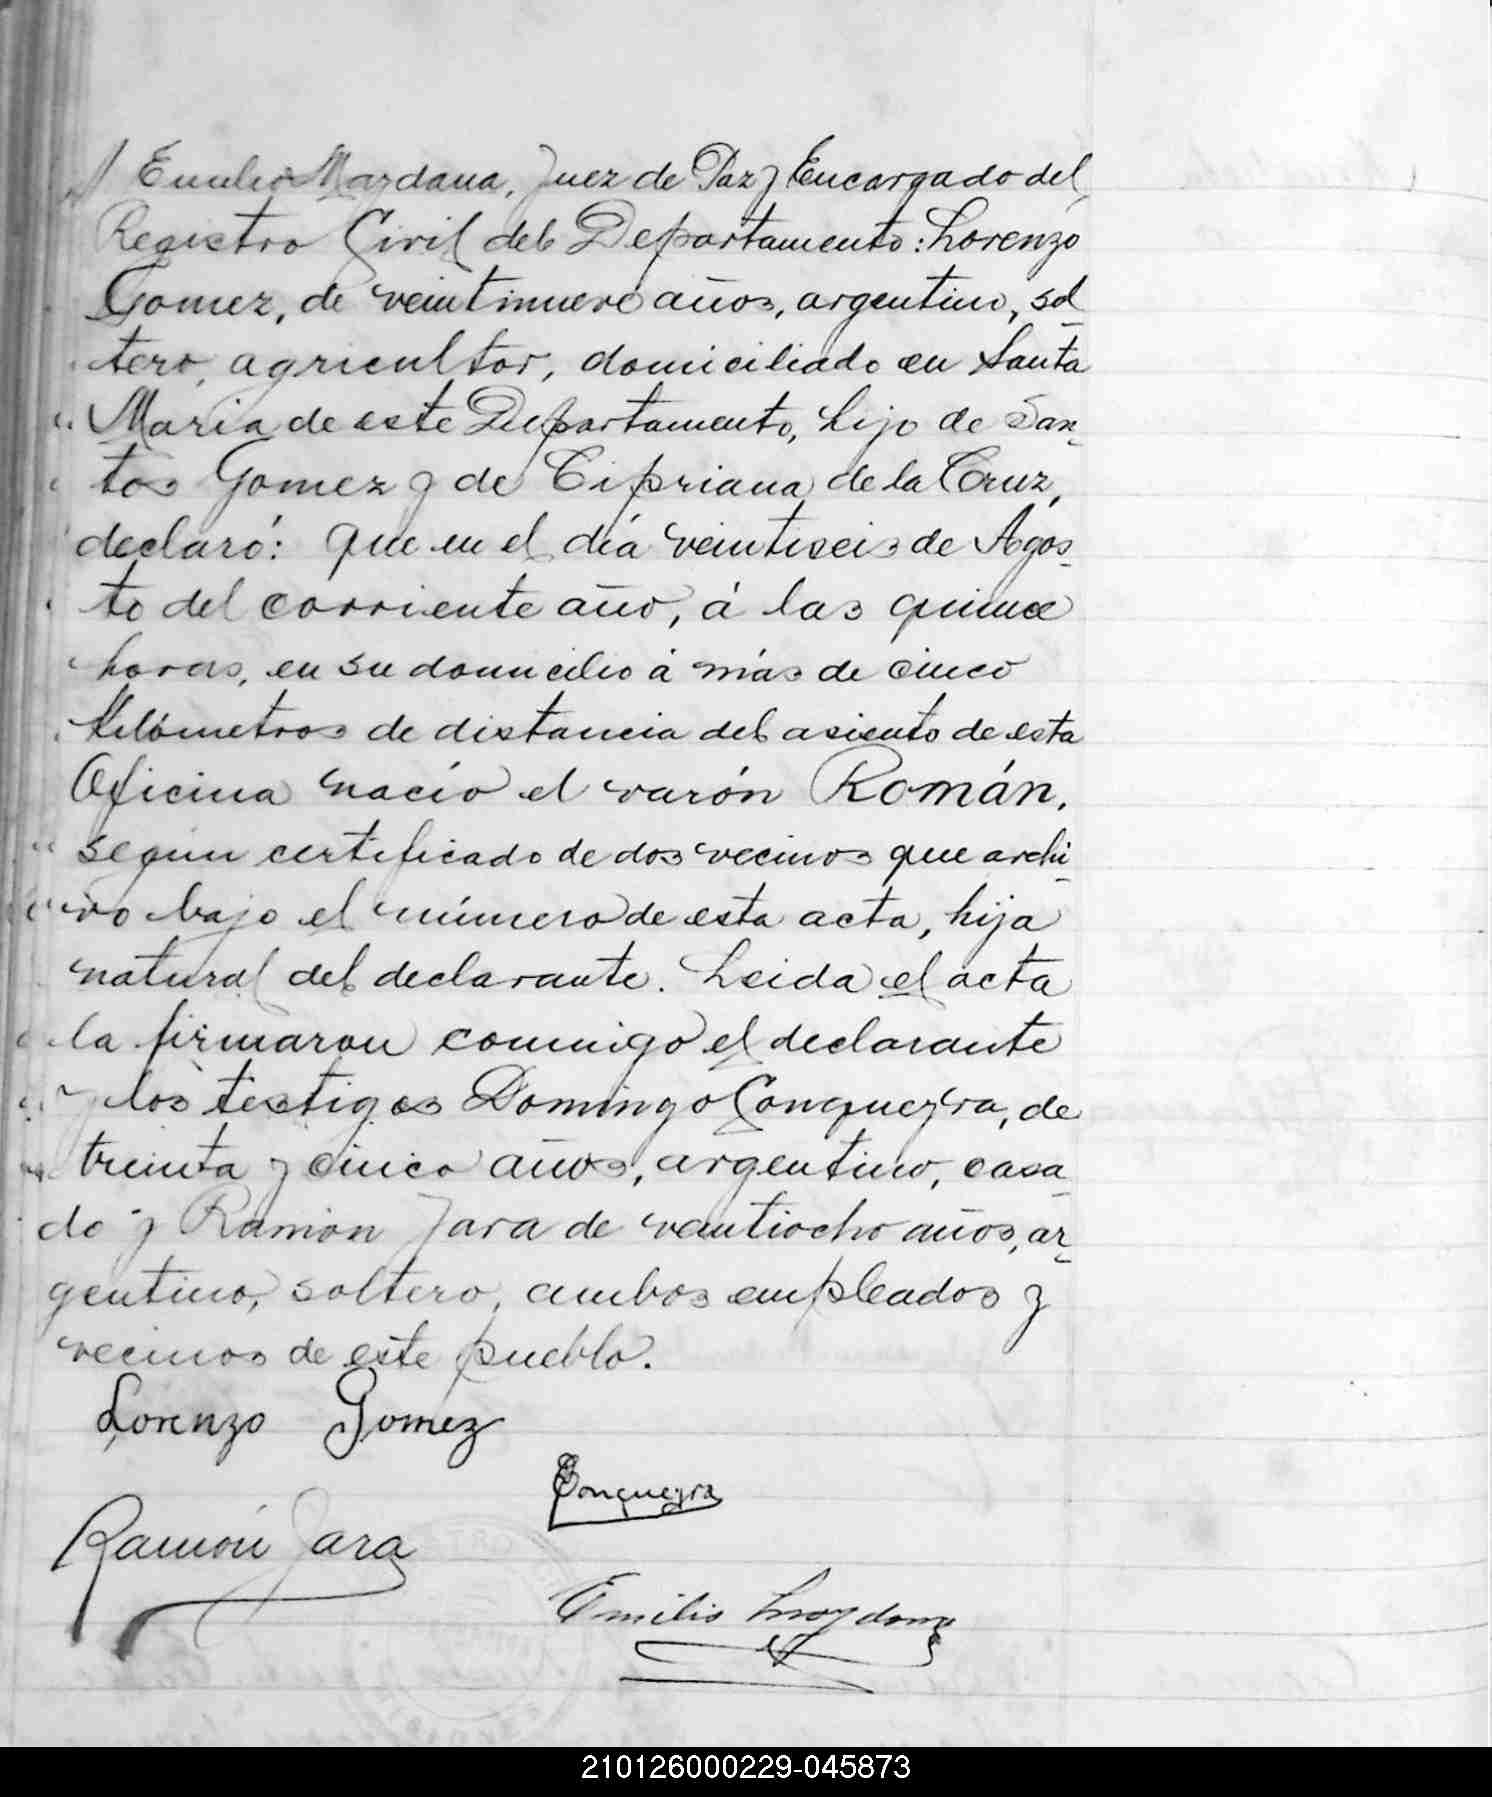 Emilio Maydana, Juez de Paz y Encargado del
Registro Civil del Departamento: Lorenzo
Gomez, de veintinueve años, argentino, sol-
tero, agricultor, domiciliado en Santa
Maria de este Departamento, hijo de San-
tos Gomez y de Cipriana de la Cruz,
declaró: que en el día veintiseis de Agos-
to del corriente año, á las quince
horas, en su domicilio á más de cinco
Kilómetros de distancia del asiento de esta
Oficina nació el varón Román,
según certificado de dos vecinos que archi-
vo bajo el número de esta acta, hija
natural del declarante. Leida el acta
la firmaron conmigo el declarante
y los testigos Domingo Conqueyra, de
treinta y cinco años, argentino, casa-
do y Ramón Jara de veintiocho años, ar-
gentino, soltero, ambos empleados y
vecinos de este pueblo.
Lorenzo Gomez
Conqueyra
Ramón Jara
Emilio Maydana
210126000229-045873